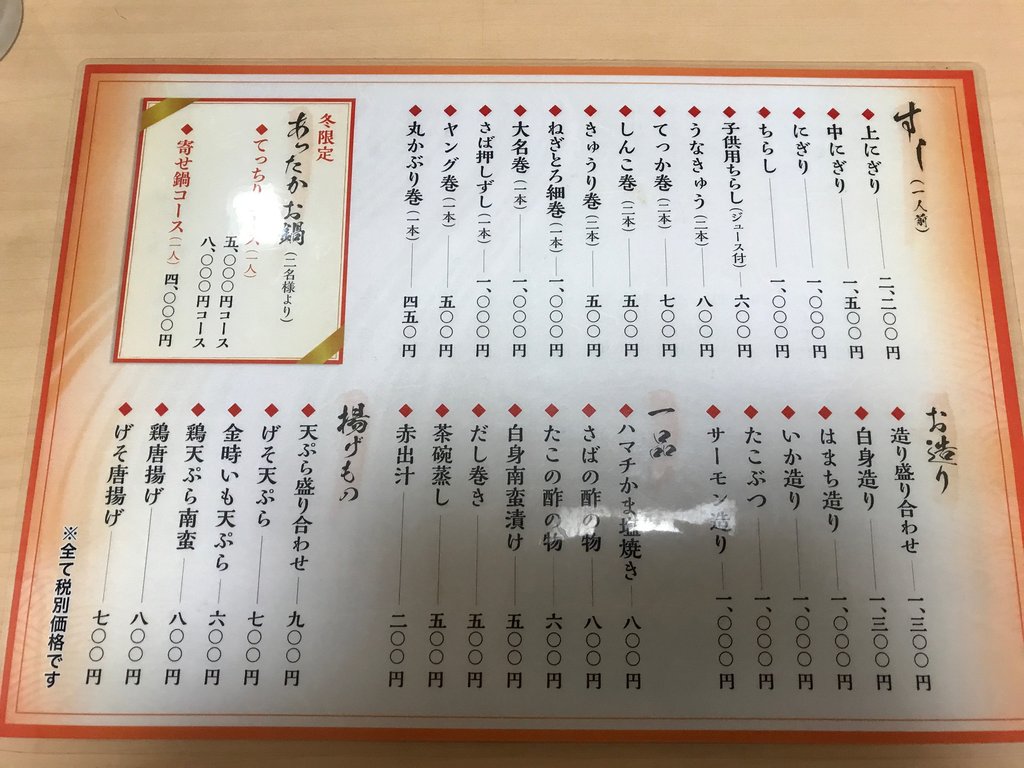 すし(一人前)
◆上にぎり 二、二〇〇円
◆中にぎり 一、五〇〇円
◆にぎり 一、〇〇〇円
◆ちらし 一、〇〇〇円
◆子供用ちらし(ジュース付) 六〇〇円
◆うなきゅう(二本) 八〇〇円
◆てっか巻(二本) 七〇〇円
◆しんこ巻(二本) 五〇〇円
◆きゅうり巻(二本) 五〇〇円
◆ねぎとろ細巻(一本) 一、〇〇〇円
◆大名巻(一本) 一、〇〇〇円
◆さば押しずし(一本) 一、〇〇〇円
◆ヤング巻(一本) 五〇〇円
◆丸かぶり巻(一本) 四五〇円
冬限定
あったかお鍋(二名様より)
◆てっちり (一人)
五、〇〇〇円コース
八、〇〇〇円コース
◆寄せ鍋コース(一人) 四、〇〇〇円
お造り
◆造り盛り合わせ 一、三〇〇円
◆白身造り 一、三〇〇円
◆はまち造り 一、〇〇〇円
◆いか造り 一、〇〇〇円
◆たこぶつ 一、〇〇〇円
◆サーモン造り 一、〇〇〇円
一品
◆ハマチかま塩焼き 八〇〇円
◆さばの酢の物 八〇〇円
◆たこの酢の物 六〇〇円
◆白身南蛮漬け 五〇〇円
◆だし巻き 五〇〇円
◆茶碗蒸し 五〇〇円
◆赤出汁 二〇〇円
揚げもの
◆天ぷら盛り合わせ 九〇〇円
◆げそ天ぷら 七〇〇円
◆金時いも天ぷら 六〇〇円
◆鶏天ぷら南蛮 八〇〇円
◆鶏唐揚げ 八〇〇円
◆げそ唐揚げ 七〇〇円
※全て税別価格です